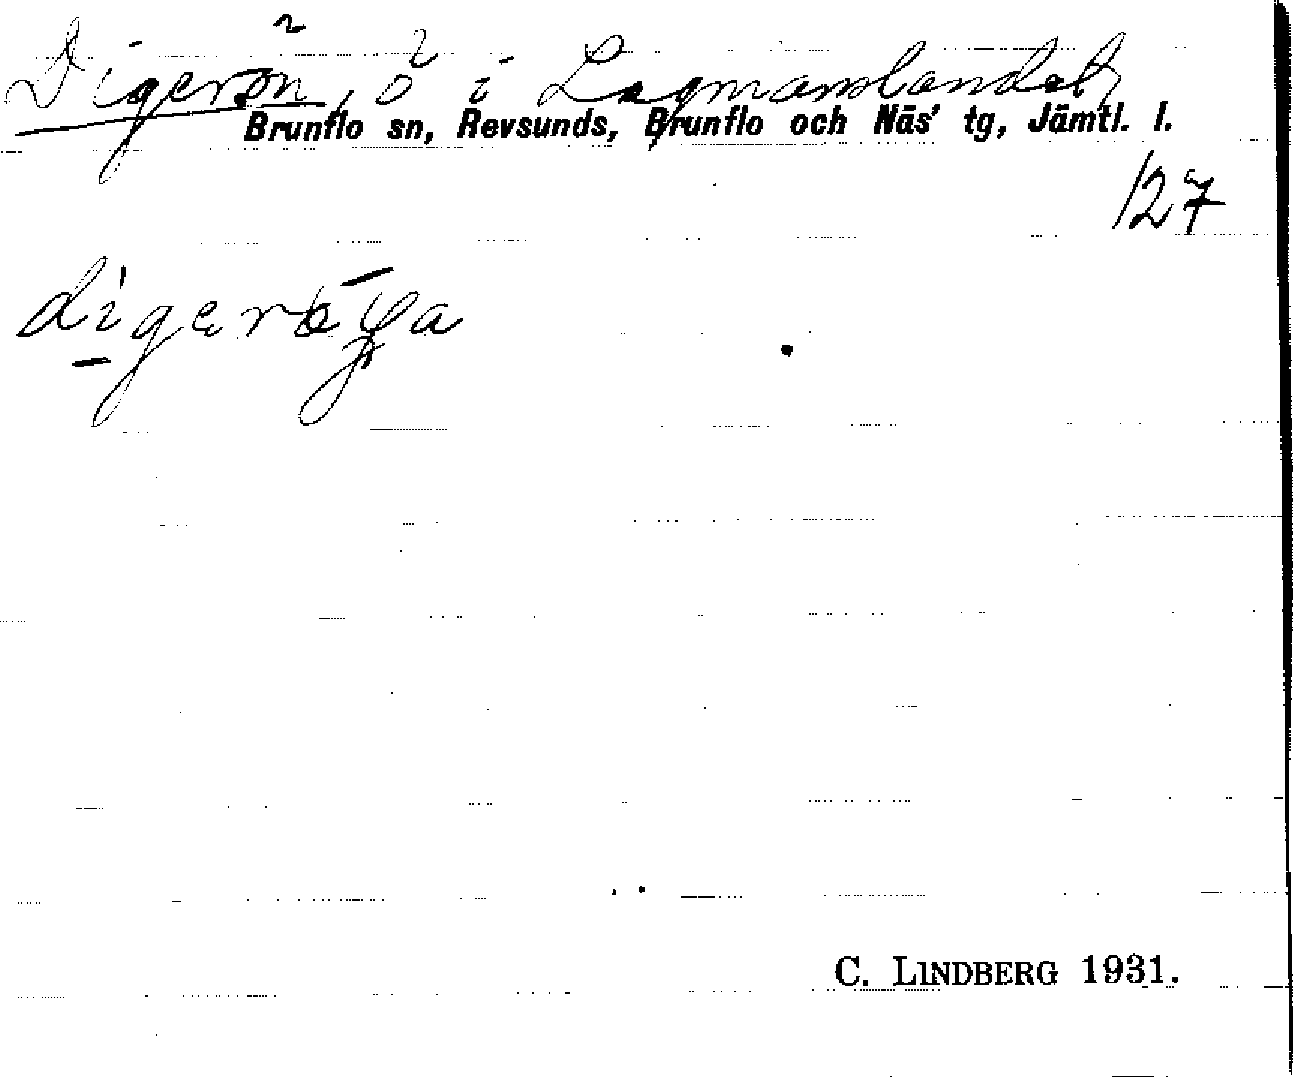 Digerön, ö i Lagmanslandet,
Brunflo sn, Revsunds, Brunflo och Näs' tg, Jämtl. l.
127
C. LINDBERG 1931.